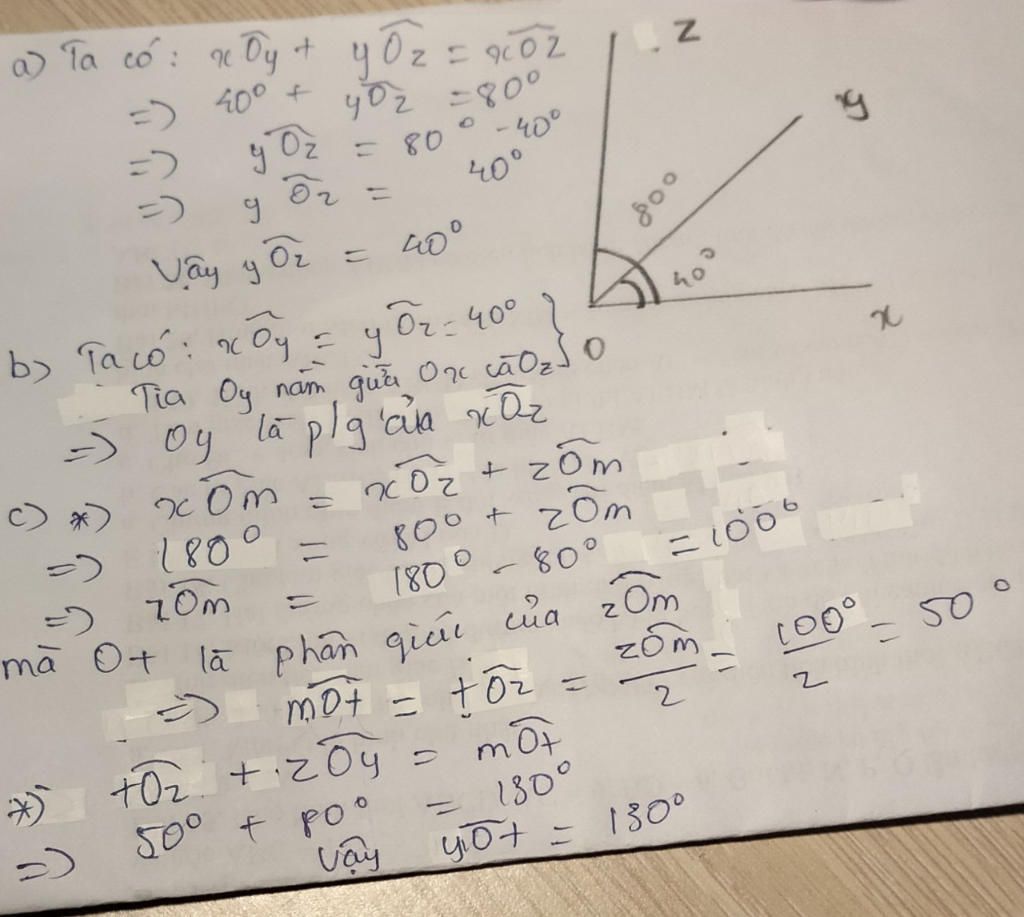 a) Ta có: xÔy + yÔz = xÔz
=> 40° + yÔz = 80°
=> yÔz = 80° - 40°
=> yÔz = 40°
Vậy yÔz = 40°
z
y
80°
40°
x
O
b) Ta có: xÔy = yÔz = 40°
Tia Oy nằm giữa Ox và Oz }
=> Oy là p/g của xÔz
c) *) xÔm = xÔz + zÔm
=> 180° = 80° + zÔm
=> zÔm = 180° - 80° = 100°
mà Ot là phân giác của zÔm
=> mÔt = tÔz = zÔm/2 = 100°/2 = 50°
*) tÔz + zÔy = mÔt
=> 50° + 80° = 130°
Vậy yÔt = 130°